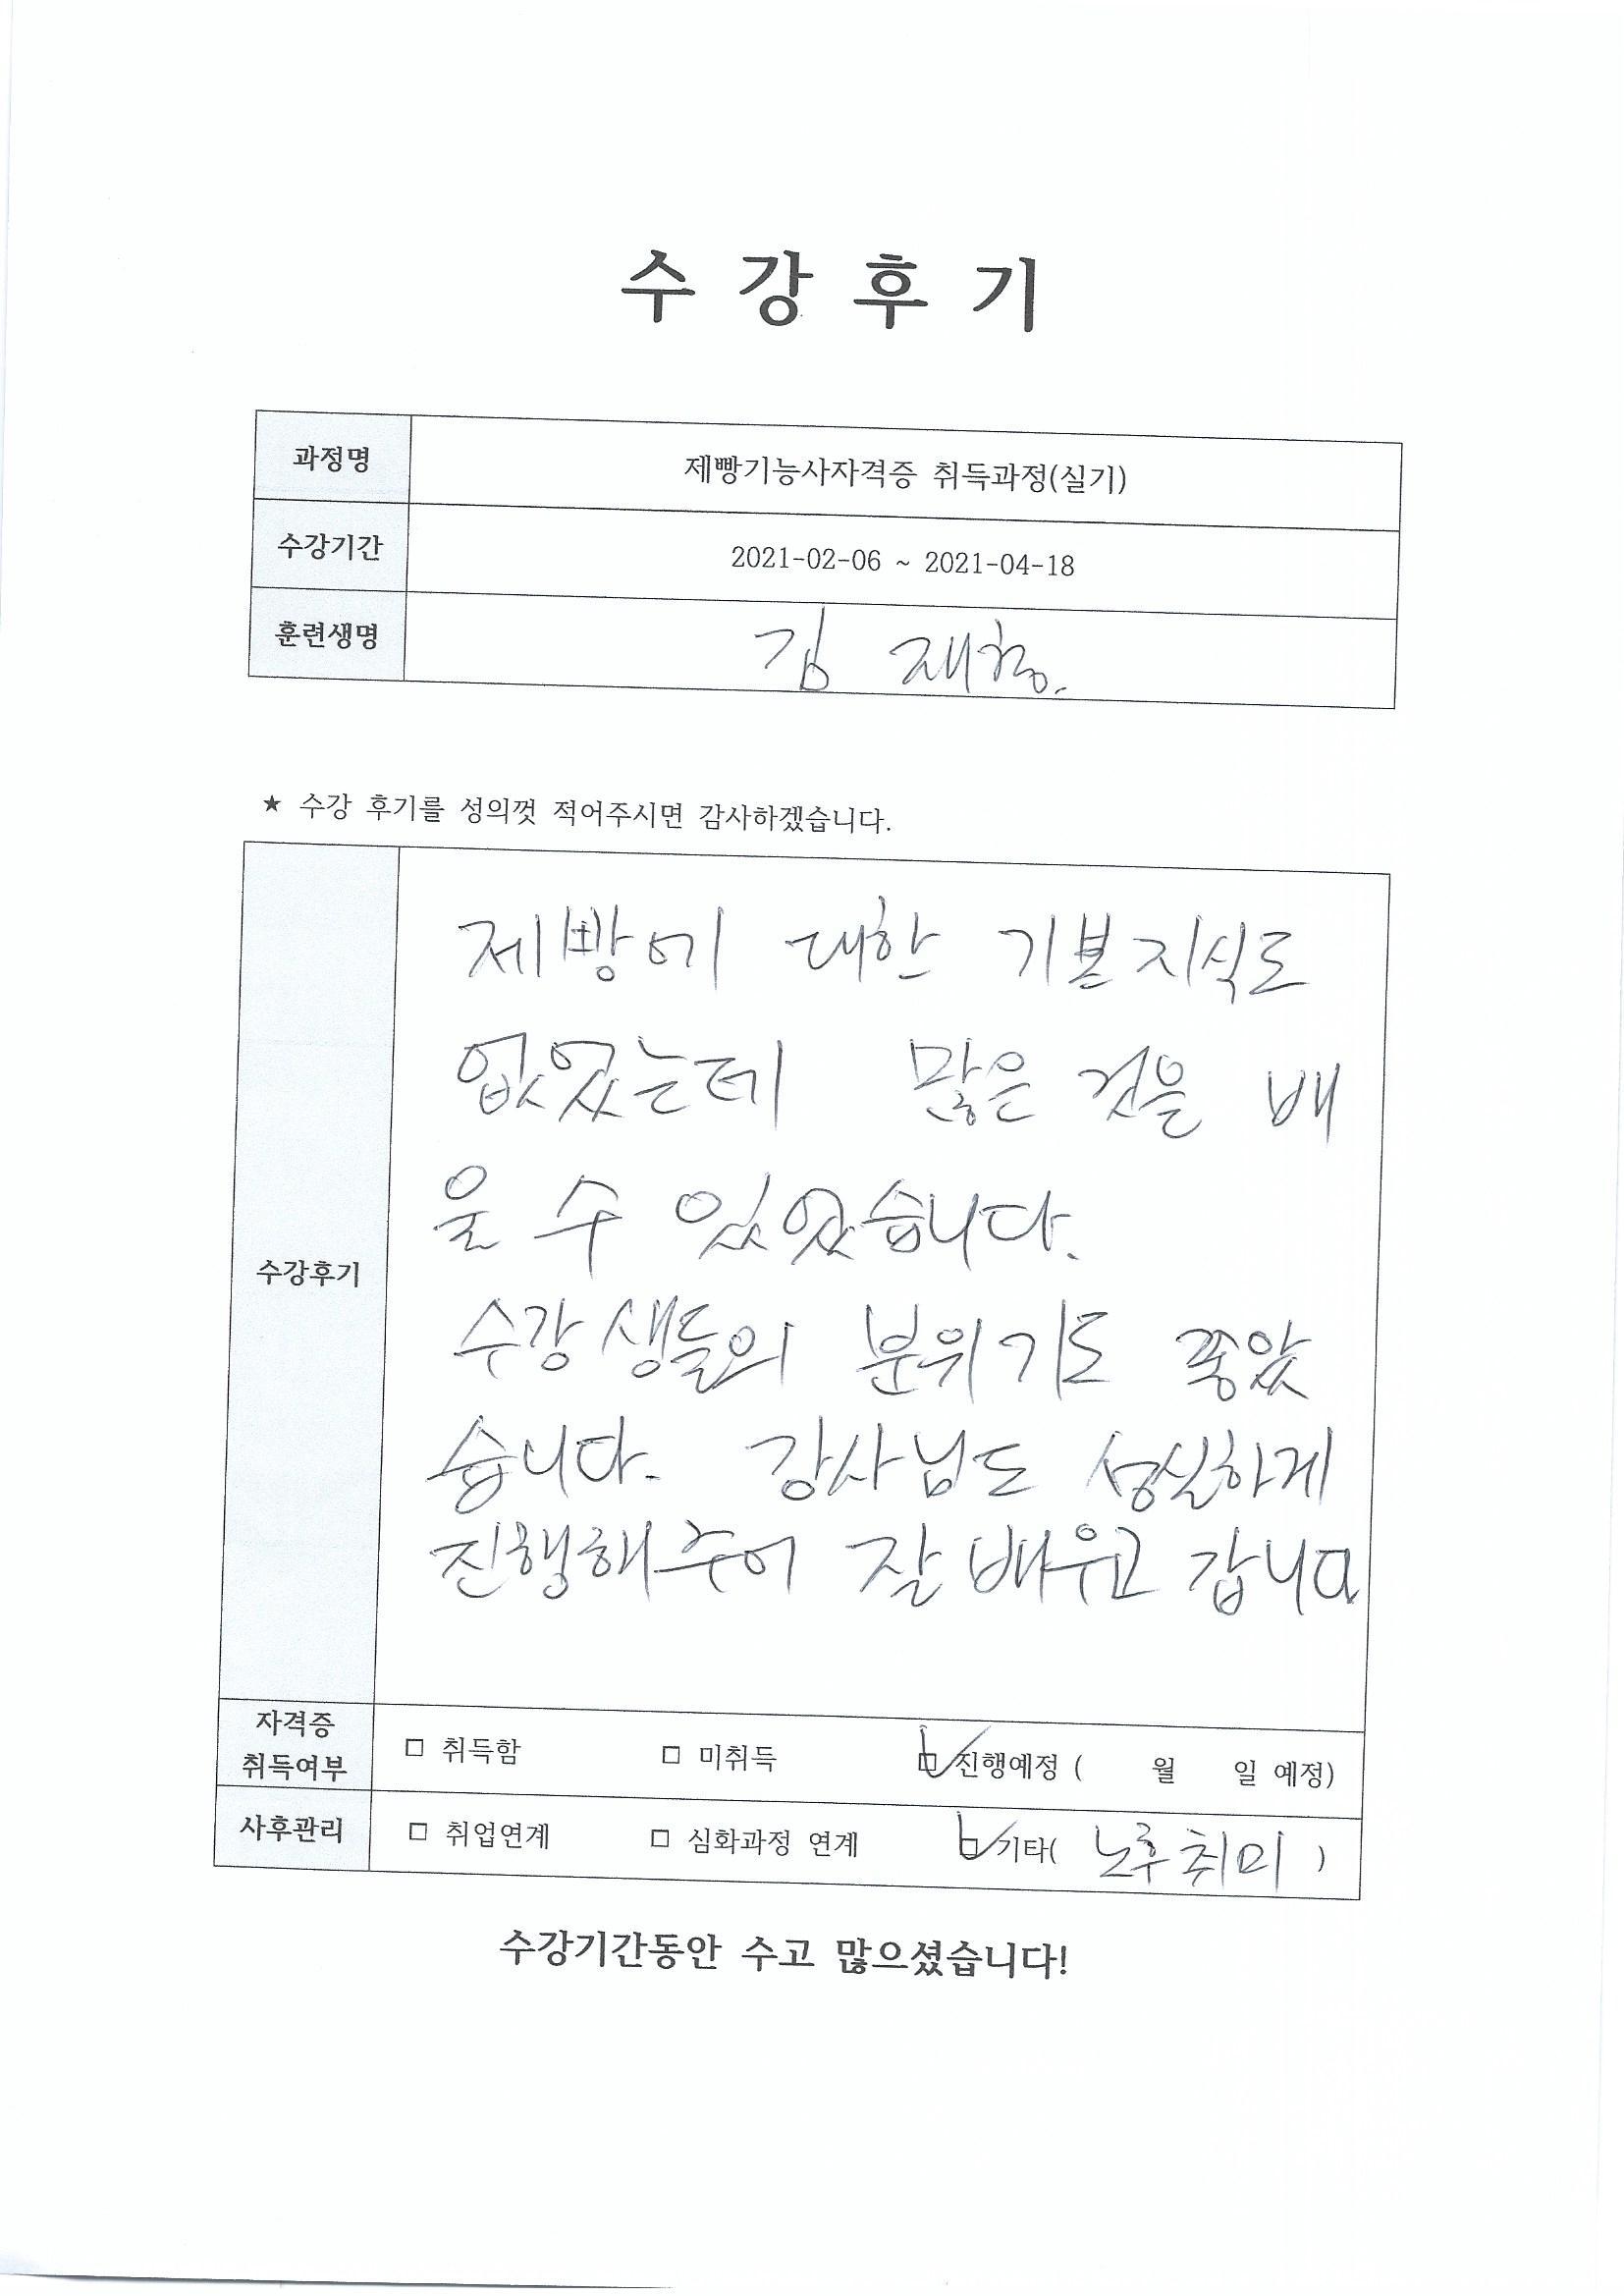 수 강 후 기
과정명 제빵기능사자격증 취득과정(실기)
수강기간 2021-02-06 ~ 2021-04-18
훈련생명 김
★ 수강 후기를 성의껏 적어주시면 감사하겠습니다.
수강후기
제빵에 대한 기본지식도
없었는데 많은 것을 배
울 수 있었습니다.
수강생들의 분위기도 좋았
습니다. 강사님도 성실하게
진행해주어 잘 배우고 갑니다
자격증
취득여부
□ 취득함 □ 미취득 ☑ 진행예정 ( 월 일 예정)
사후관리 □ 취업연계 □ 심화과정 연계 ☑ 기타( 노후취미 )
수강기간동안 수고 많으셨습니다!